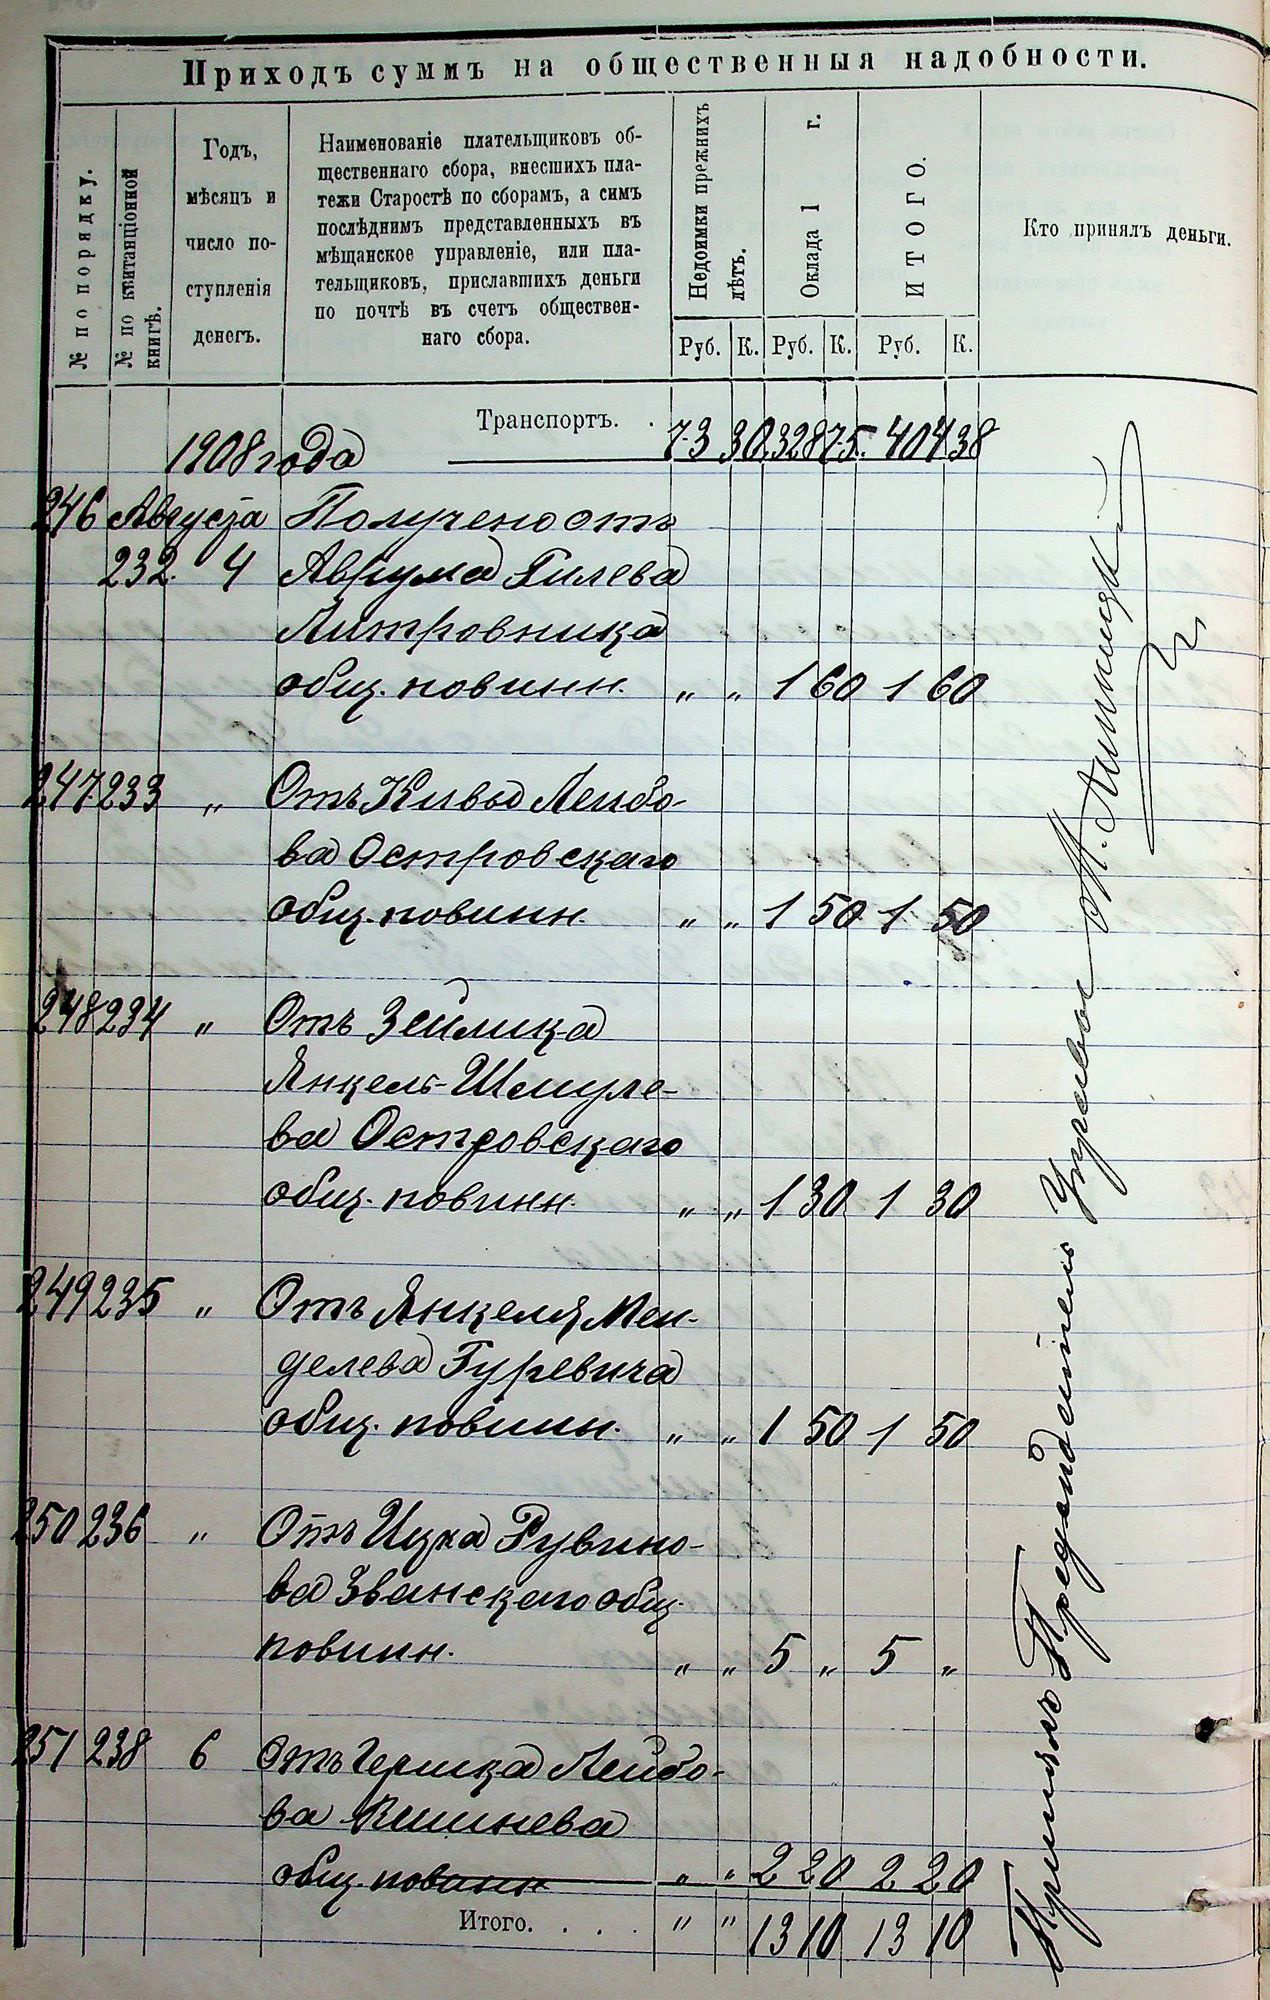 Приходъ суммъ на общественныя надобности.
№ по порядку.
№ по квитанціонной
книгѣ.
Годъ,
мѣсяцъ и
число по-
ступленія
денегъ.
Наименованіе плательщиковъ об-
щественнаго сбора, внесшихъ пла-
тежи Старостѣ по сборамъ, а симъ
послѣднимъ представленныхъ въ
мѣщанское управленіе, или пла-
тельщиковъ, приславшихъ деньги
по почтѣ въ счетъ обществен-
наго сбора.
Недоимки прежнихъ
лѣтъ.
Оклада 1 г.
ИТОГО.
Кто принялъ деньги.
Руб. К. Руб. К. Руб. К.
Транспортъ. . 73 30 328 75. 404 38
1908 года
246 Августа Получено отъ
232. 4 Аврума Гилева
Литровника
общ. повинн. „ „ 1 60 1 60
247 233 „ Отъ Кивы Лейбо-
ва Островскаго
общ. повинн. „ „ 1 50 1 50
248 234 „ Отъ Зейлика
Янкель-Шмуле-
ва Островскаго
общ. повинн. „ „ 1 30 1 30
249 235 „ Отъ Янкеля Мен-
делева Гуревича
общ. повинн. „ „ 1 50 1 50
250 236 „ Отъ Ицка Рувино-
ва Званскаго общ.
повинн. „ „ 5 „ 5 „
251 238 6 Отъ Гершка Лейбо-
ва Кишнева
общ. повинн „ „ 2 20 2 20
Итого. . . . „ „ 13 10 13 10
Принялъ Предсѣдатель Управы М. Липницкій